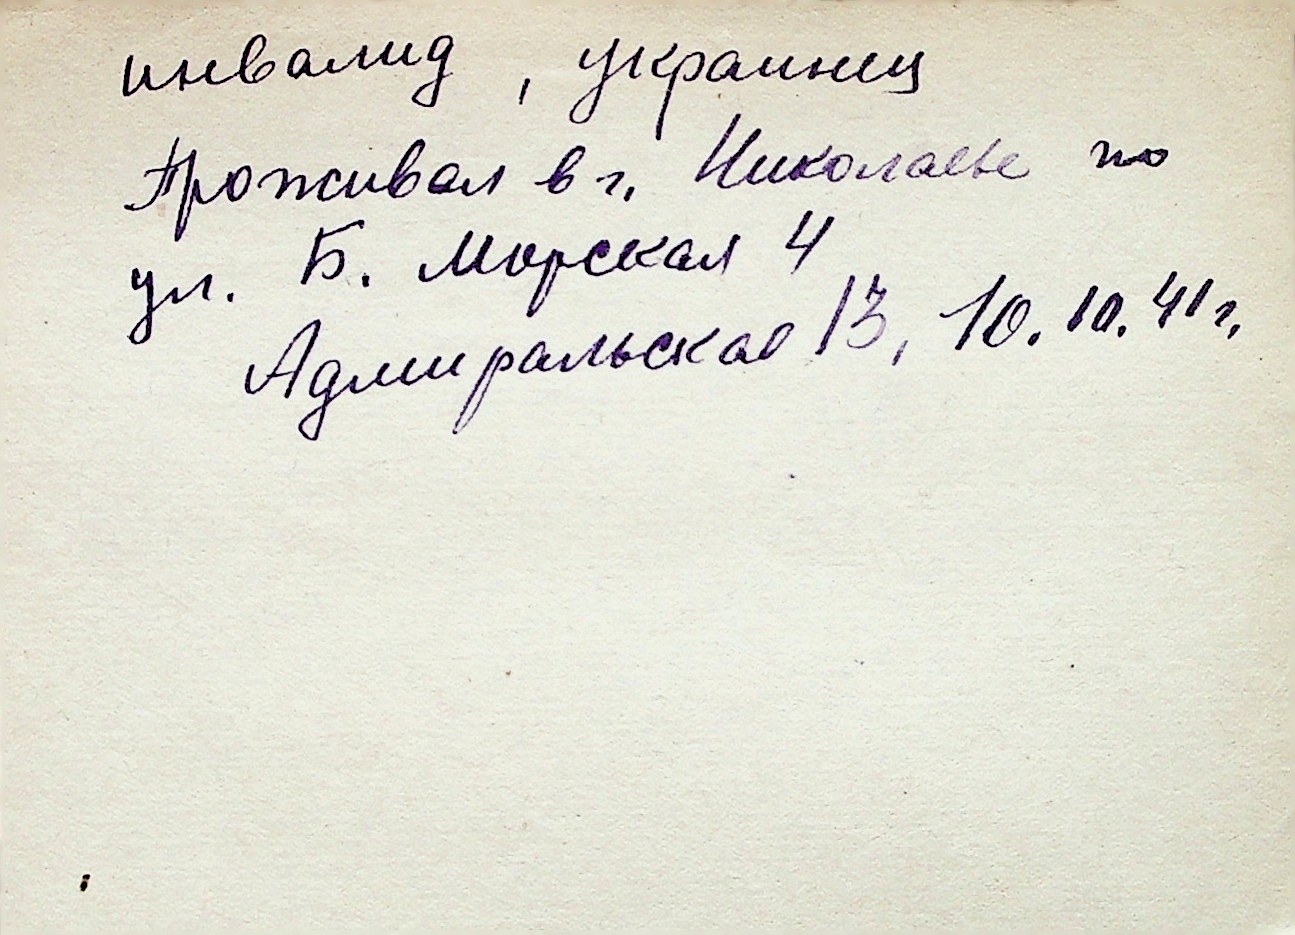 инвалид, украинец
Проживал в г. Николаеве по
ул. Б. Морская 4
Адмиральская 13, 10.10.41 г.